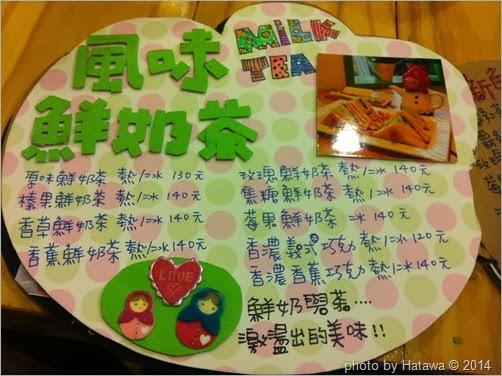 風味
鮮奶茶
MiLK
TEA
原味鮮奶茶 熱/冰 130元
榛果鮮奶茶 熱/冰 140元
香草鮮奶茶 熱/冰 140元
香蕉鮮奶茶 熱/冰 140元
玫瑰鮮奶茶 熱/冰 140元
焦糖鮮奶茶 熱/冰 140元
莓果鮮奶茶 冰 140元
香濃義式巧克力 熱/冰 120元
香濃香蕉巧克力 熱/冰 140元
LOVE
鮮奶與茶....
激盪出的美味!!
photo by Hatawa © 2014